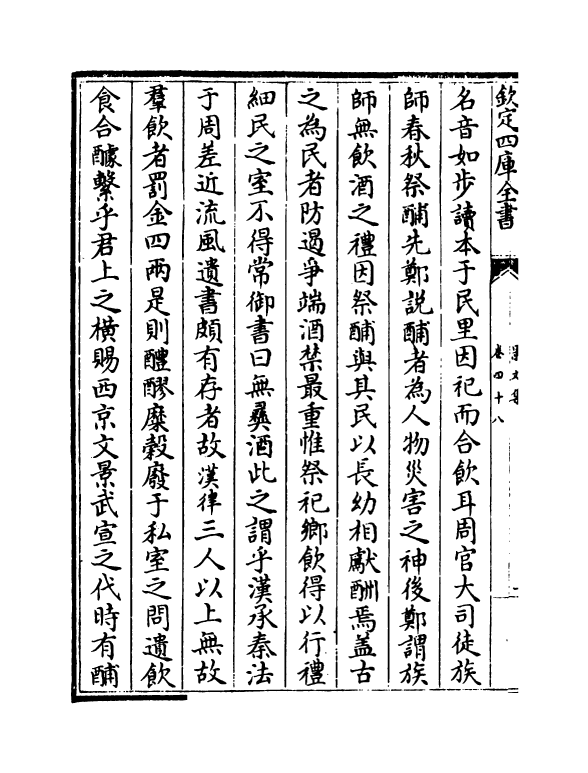 欽定四庫全書
卷四十八
名音如步讀本于民里因祀而合飲耳周官大司徒族
師春秋祭酺先鄭説酺者為人物災害之神後鄭謂族
師無飲酒之禮因祭酺與其民以長幼相獻酬焉盖古
之為民者防遏爭端酒禁最重惟祭祀鄉飲得以行禮
細民之室不得常御書曰無彞酒此之謂乎漢承秦法
于周差近流風遺書頗有存者故漢律三人以上無故
羣飲者罰金四兩是則醴醪糜穀廢于私室之問遺飲
食合醵繫乎君上之橫賜西京文景武宣之代時有酺